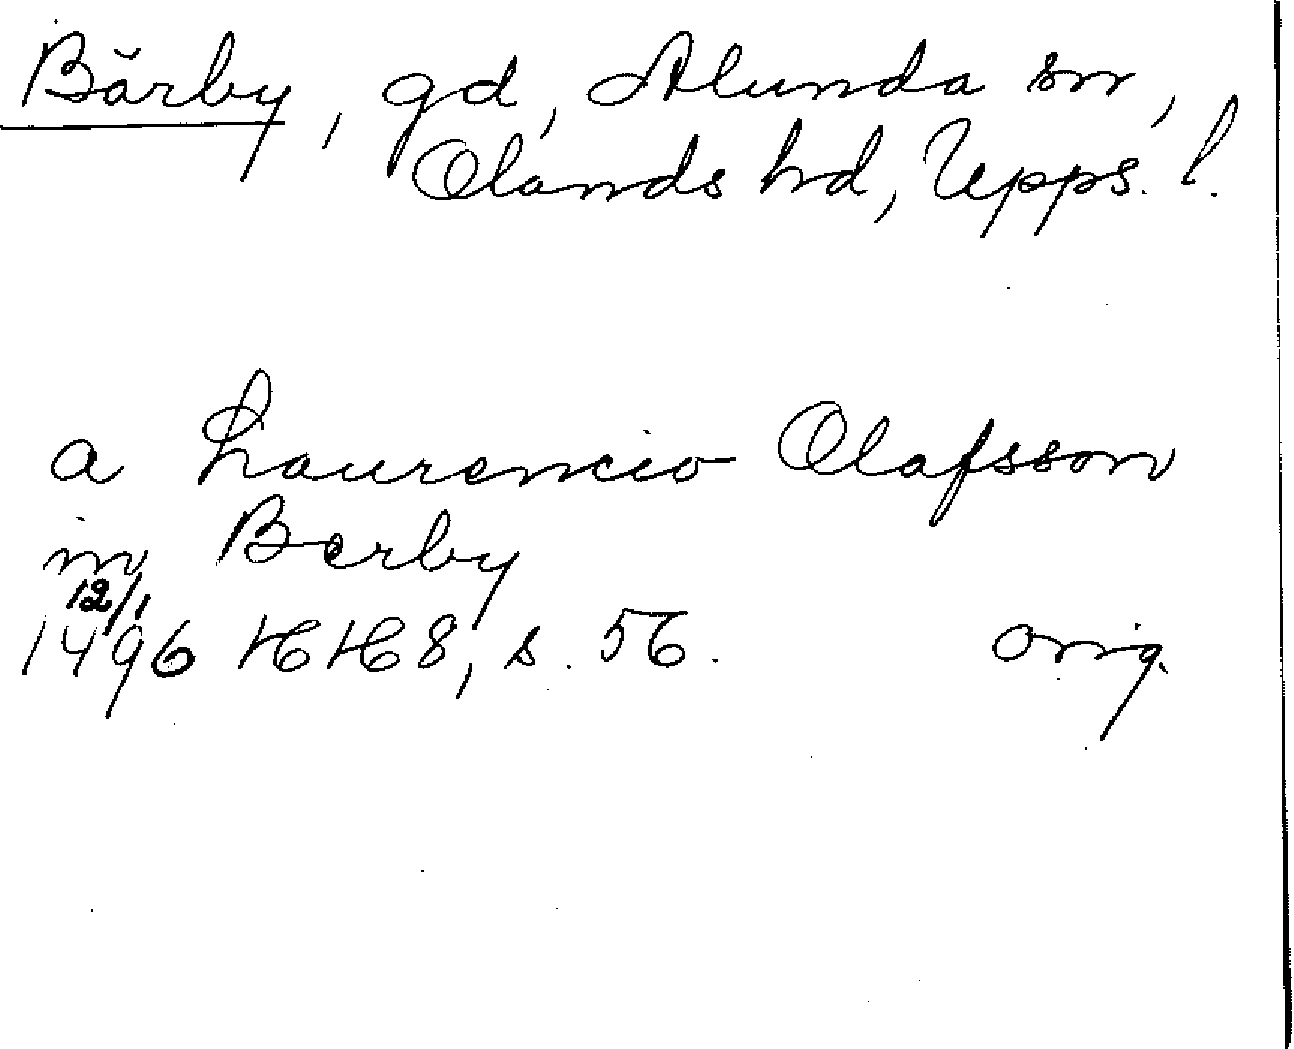 Bärby, gd, Alunda sn,
Olands hd, Upps. l.
a Laurencio Olafsson
in Berby
12/1
1496 HH 8, s. 56. orig.